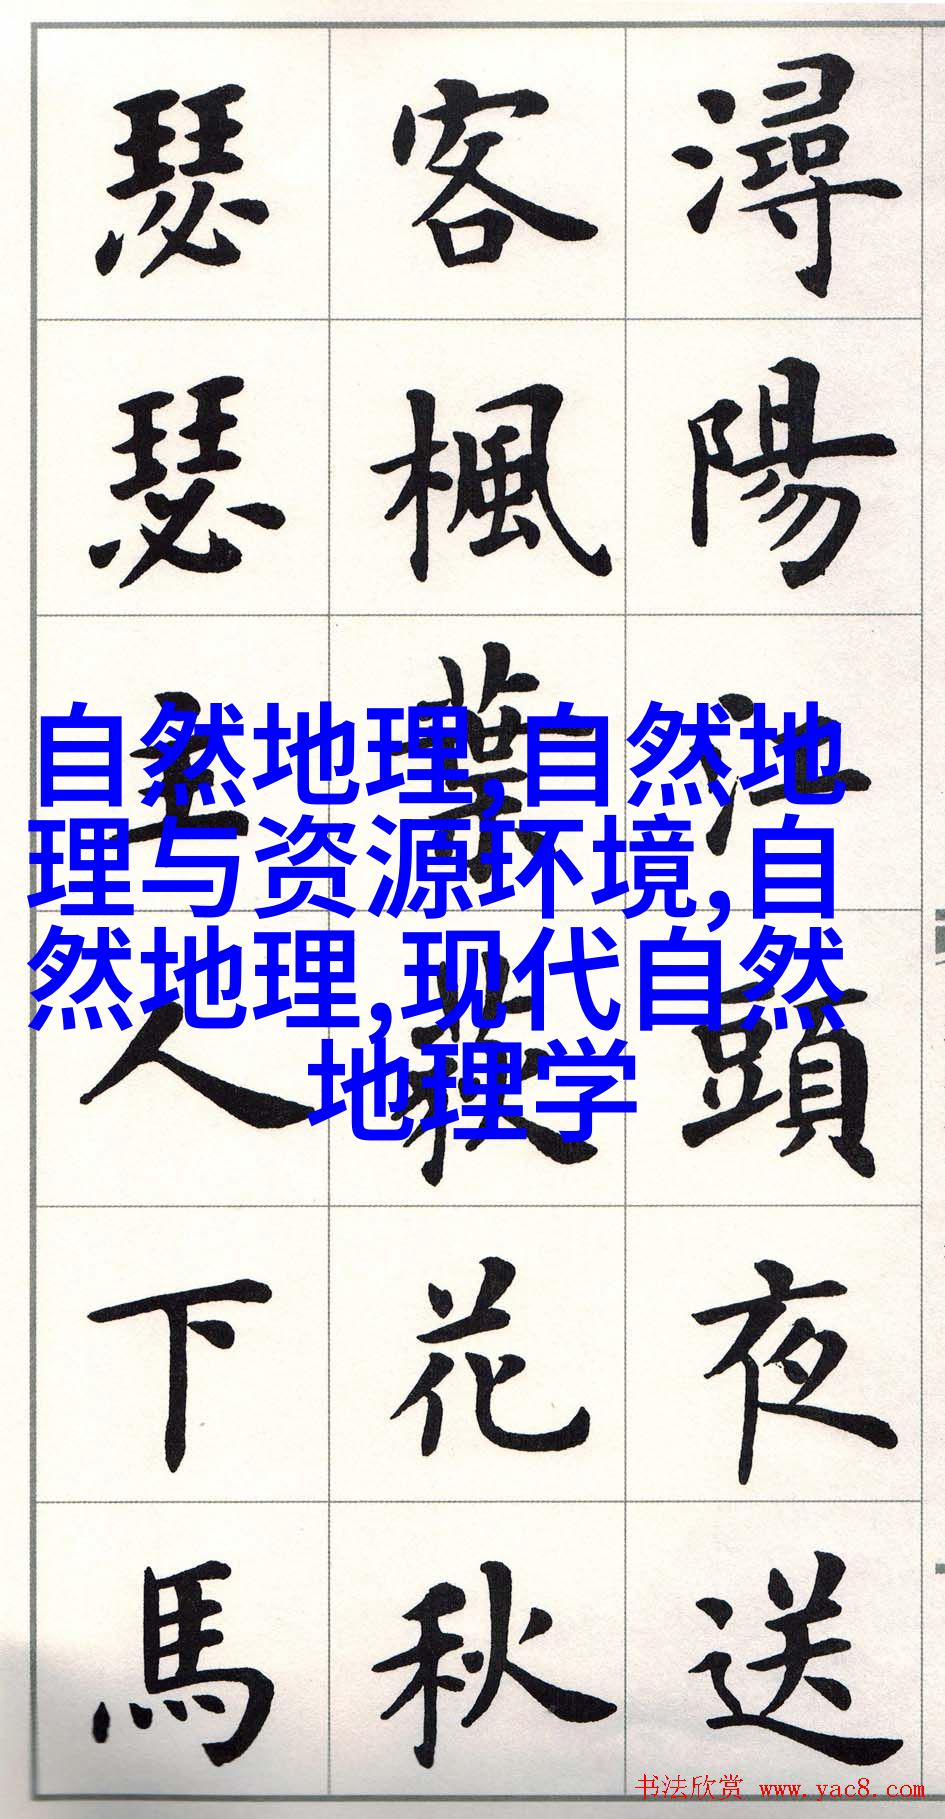 潯陽江頭夜送
客楓葉荻花秋
瑟瑟主人下馬
自然地理,自然地
理与资源环境,自
然地理,现代自然
地理学
书法欣赏 www.yac8.com